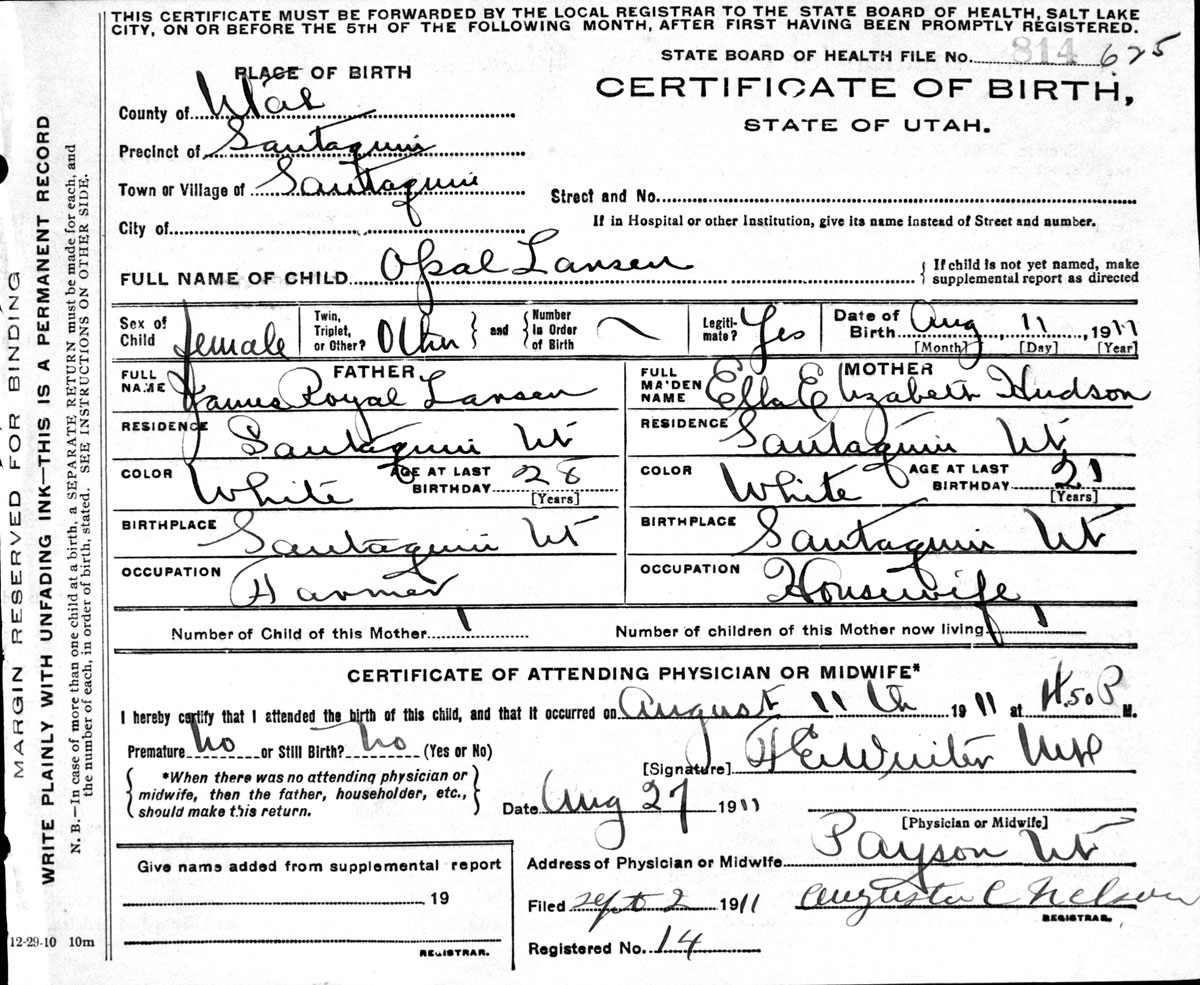 THIS CERTIFICATE MUST BE FORWARDED BY THE LOCAL REGISTRAR TO THE STATE BOARD OF HEALTH, SALT LAKE
CITY, ON OR BEFORE THE 5TH OF THE FOLLOWING MONTH, AFTER FIRST HAVING BEEN PROMPTLY REGISTERED.
STATE BOARD OF HEALTH FILE No. 814 625
PLACE OF BIRTH
CERTIFICATE OF BIRTH,
STATE OF UTAH.
County of Utah
Precinct of Santaquin
Town or Village of Santaquin
Street and No.
City of
If in Hospital or other Institution, give its name instead of Street and number.
FULL NAME OF CHILD Opal Larsen
{ If child is not yet named, make
supplemental report as directed
Sex of Child female Twin, Triplet, or Other? Other } and { Number In Order of Birth Legiti-mate? Yes Date of Birth Aug 11 1911
[Month] [Day] [Year]
FATHER MOTHER
FULL NAME James Royal Larsen FULL MAIDEN NAME Ella Elizabeth Hudson
RESIDENCE Santaquin Ut RESIDENCE Santaquin Ut
COLOR White AGE AT LAST BIRTHDAY 28 [Years] COLOR White AGE AT LAST BIRTHDAY 21 [Years]
BIRTHPLACE Santaquin Ut BIRTHPLACE Santaquin Ut
OCCUPATION Farmer OCCUPATION Housewife
Number of Child of this Mother 1 Number of children of this Mother now living 1
CERTIFICATE OF ATTENDING PHYSICIAN OR MIDWIFE*
I hereby certify that I attended the birth of this child, and that it occurred on August 11th 1911 at 4.50 P M.
Premature No or Still Birth? No (Yes or No)
[Signature]
*When there was no attending physician or
midwife, then the father, householder, etc.,
should make this return.
Date Aug 27 1911
[Physician or Midwife]
Address of Physician or Midwife Payson Ut
Give name added from supplemental report
19
REGISTRAR.
Filed Sept 2 1911 Augusta C Nelson
REGISTRAR.
Registered No. 14
MARGIN RESERVED FOR BINDING
WRITE PLAINLY WITH UNFADING INK—THIS IS A PERMANENT RECORD
N. B.—In case of more than one child at a birth, a SEPARATE RETURN must be made for each, and
the number of each, in order of birth, stated. SEE INSTRUCTIONS ON OTHER SIDE.
12-29-10 10m